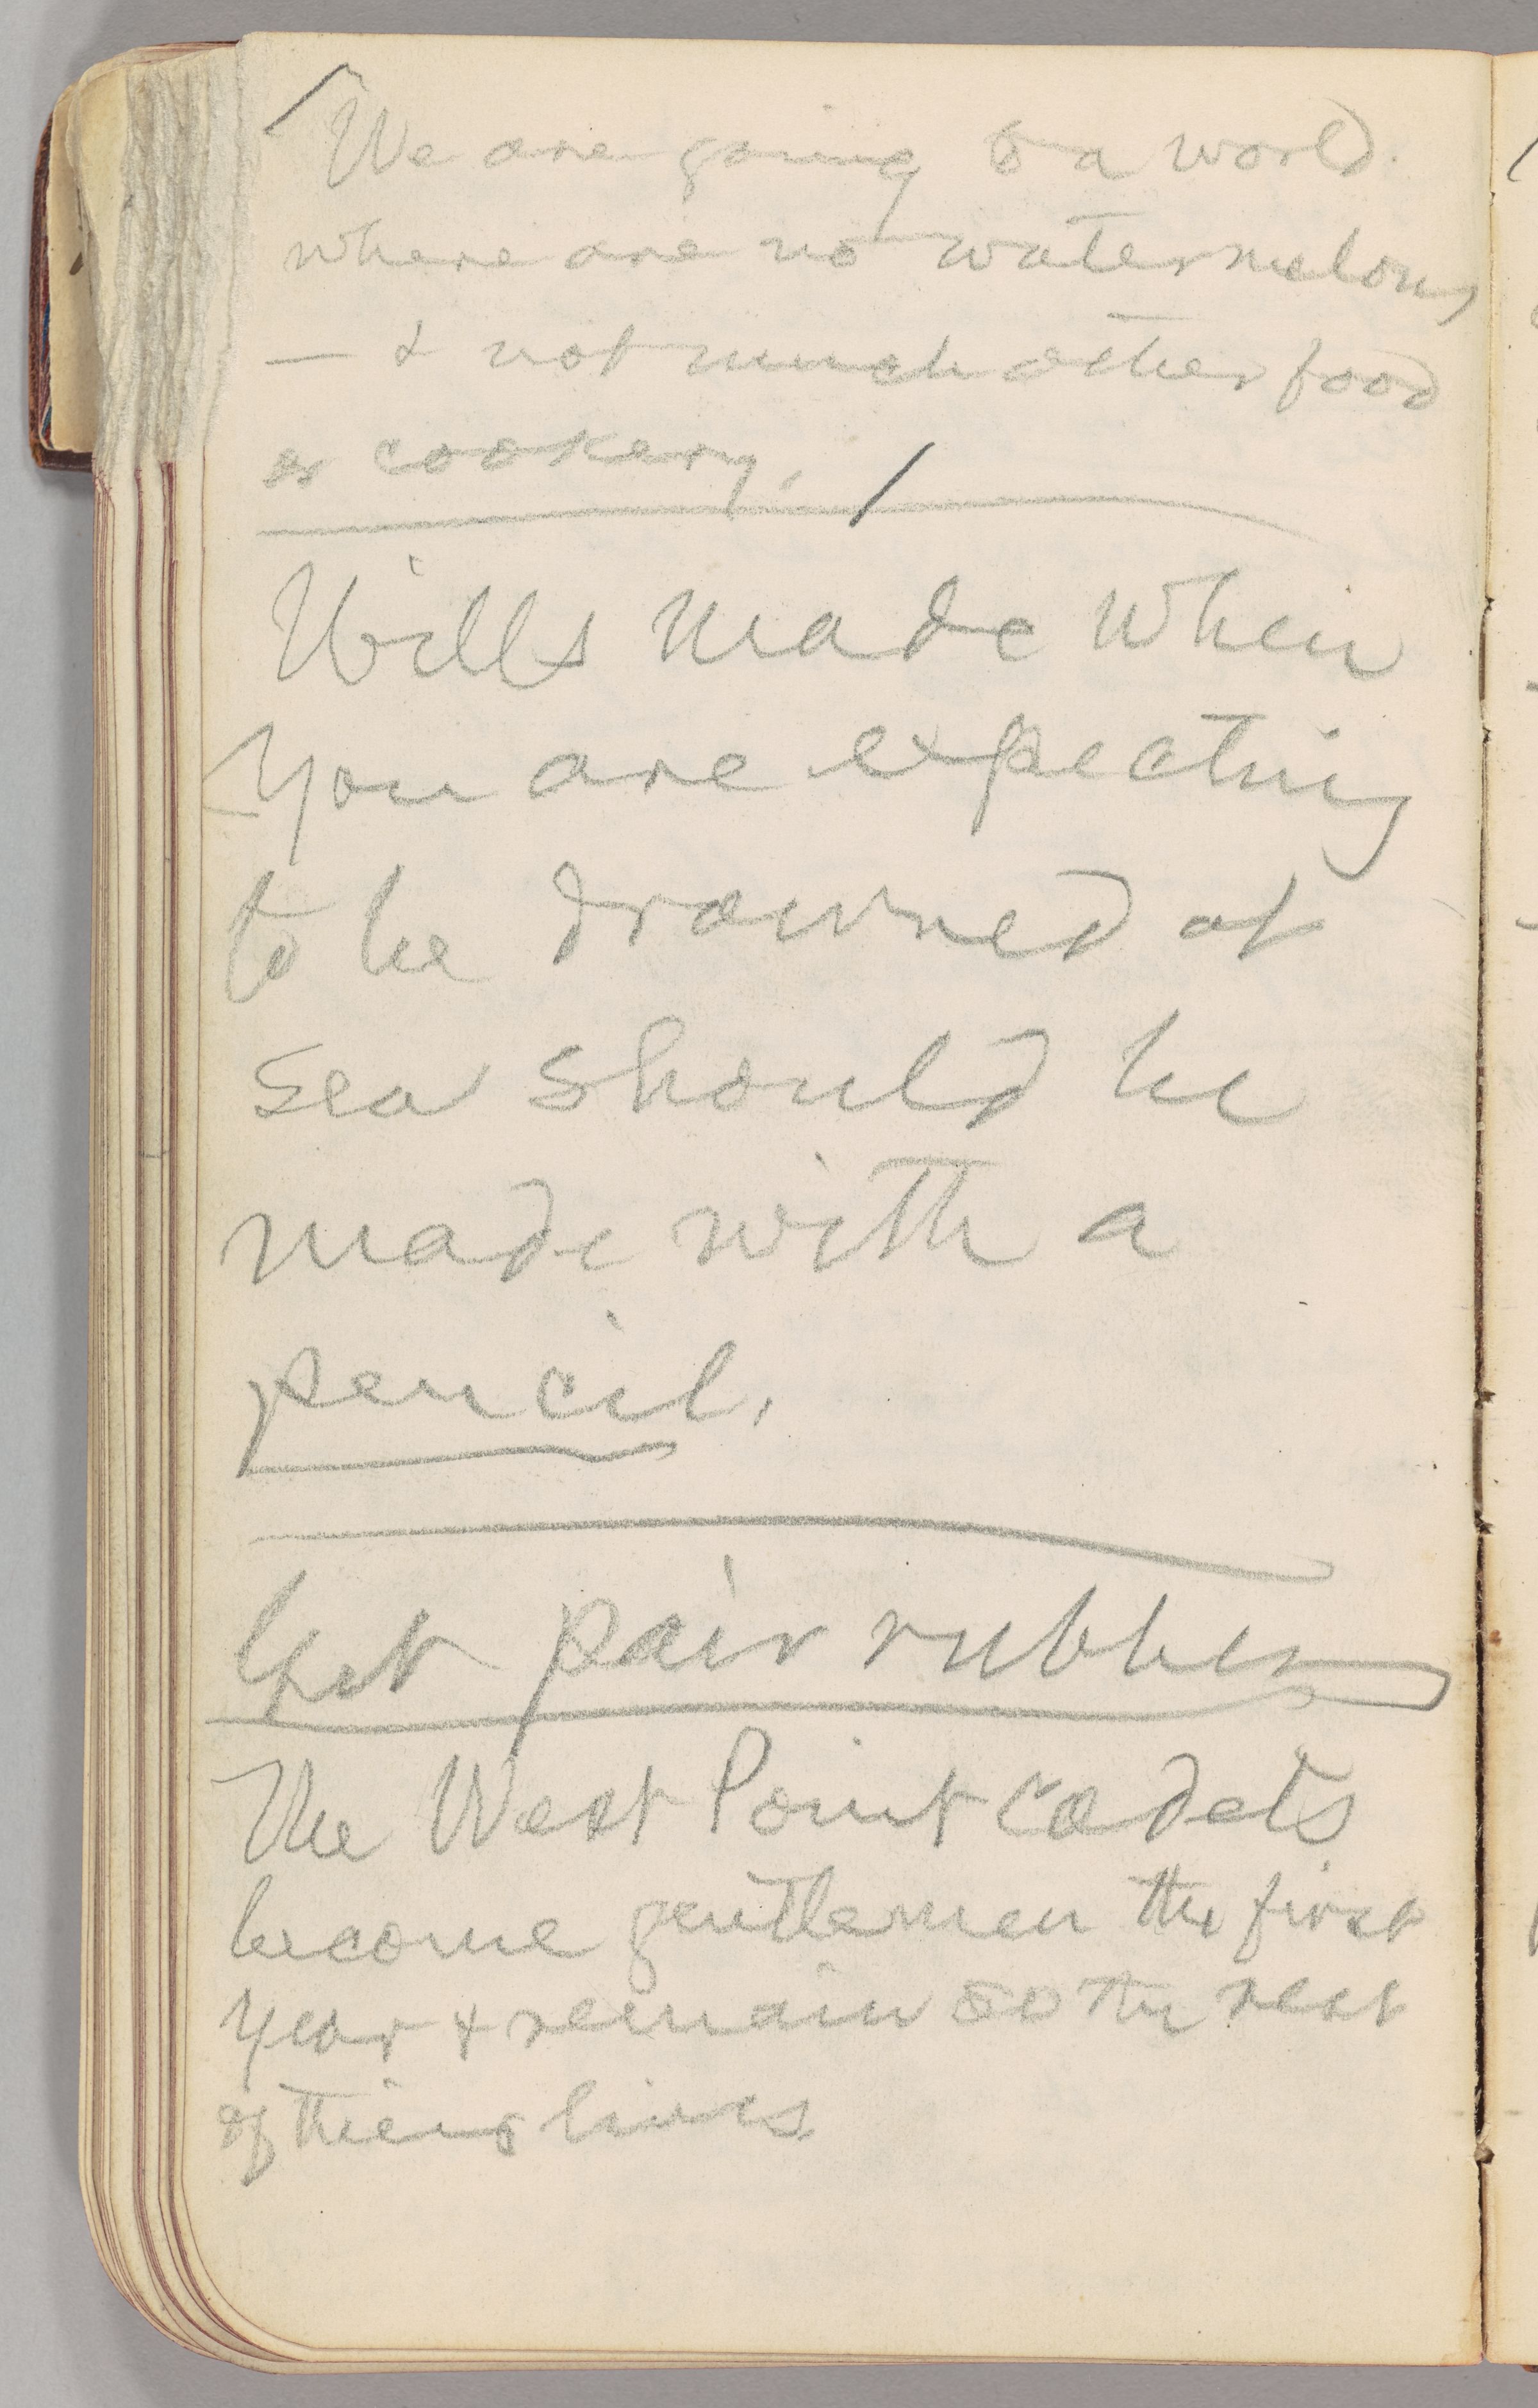 We are going to a world
where are no watermelons
— & not much other food
or cookery.
Wills made when
you are expecting
to be drowned at
sea should be
made with a
pencil.
Get pair rubbers
The West Point cadets
become gentlemen the first
year & remain so the rest
of their lives